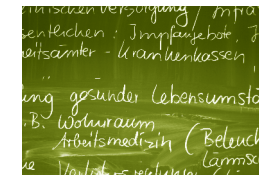 mischen Versorgung / Infra
sentlichen: Impfangebote, I
eitsämter - Krankenkassen,
ung gesunder Lebensumstä
z.B. Wohnraum
Arbeitsmedizin (Beleuch
Lärmsc